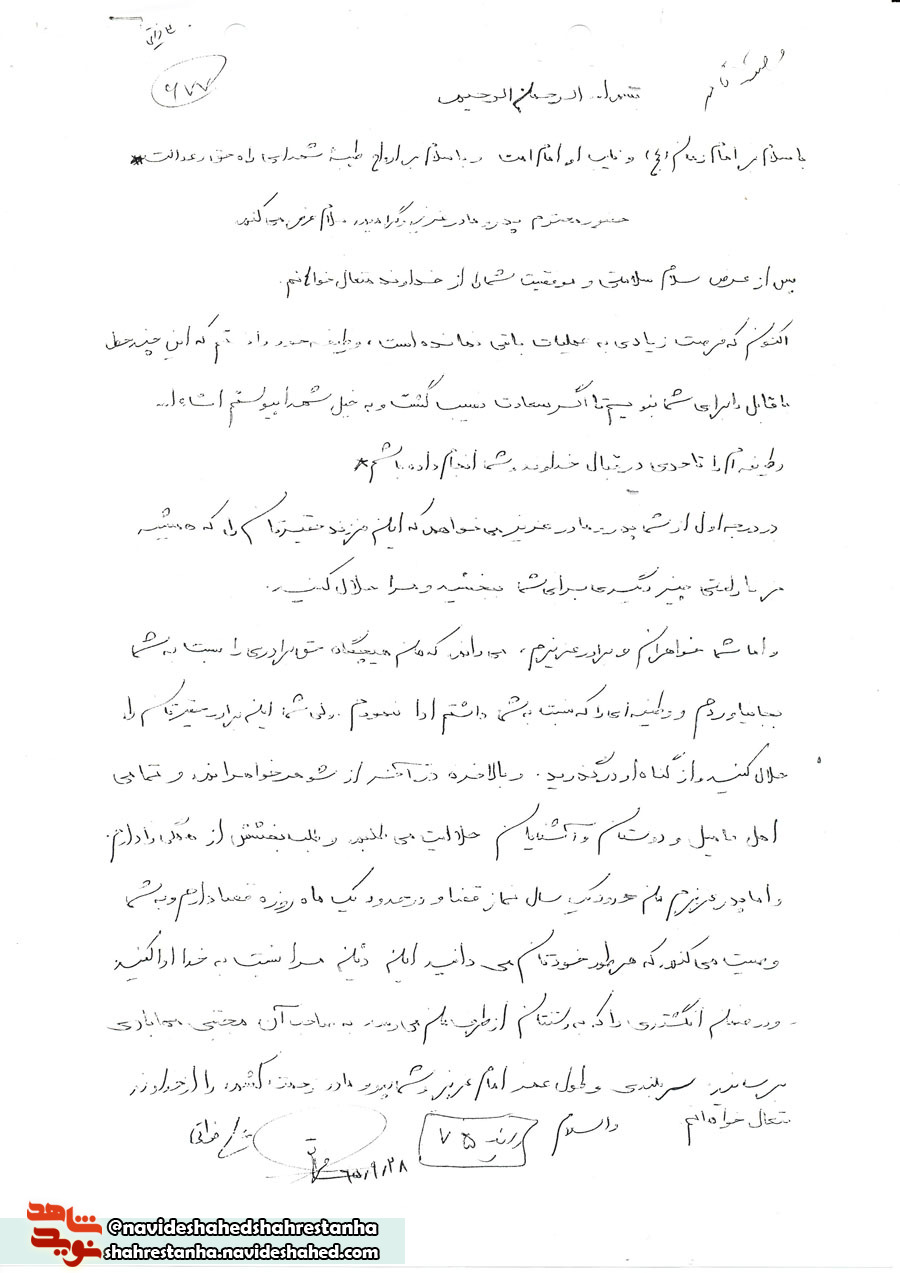 وصیت نامه
۶۷۷
بسم الله الرحمن الرحیم
با سلام بر امام زمان (عج) و نایب او امام امت و با سلام بر ارواح طیبهٔ شهدای راه حق و عدالت *
حضور محترم پدر و مادر عزیز و گرامیم سلام عرض می کنم
پس از عرض سلام سلامتی و موفقیت شما را از خداوند متعال خواهانم.
اکنون که فرصت زیادی به عملیات باقی نمانده است، وظیفه خود دانستم که این چند خط
ناقابل را برای شما بنویسم تا اگر سعادت نصیب گشت و به خیل شهدا پیوستم انشاءا...
وظیفه ام را تا حدی در قبال خداوند و شما انجام داده باشم *
در درجه اول از شما پدر و مادر عزیز می خواهم که این فرزند حقیرتان را که همیشه
دیگری برای شما ببخشید و مرا حلال کنید.
و اما شما خواهران و برادر عزیزم، می دانم که من هیچگاه حق برادری را نسبت به شما
بجا نیاوردم و وظیفه ای را که نسبت به شما داشتم ادا ننمودم ولی شما این برادر حقیرتان را
حلال کنید و از گناه او درگذرید. و بالاخره در آخر از شوهر خواهرانم و تمامی
اهل فامیل و دوستان و آشنایان حلالیت می طلبم و طلب بخشش از همگی را دارم.
و اما پدر عزیزم من حدود یک سال نماز قضا و در حدود یک ماه روزه قضا دارم و به شما
وصیت می کنم که هر طور خودتان می دانید این دین مرا نسبت به خدا ادا کنید
و در ضمن انگشتری را که به دستتان از طرف من می رسد به صاحب آن مجتبی
برسانید. سربلندی و طول عمر امام عزیز و شما پدر و مادر زحمت کشم را از خداوند
متعال خواهانم والسلام
۶۵/۹/۲۸
شاهد
نوید
@navideshahedshahrestanha
shahrestanha.navideshahed.com